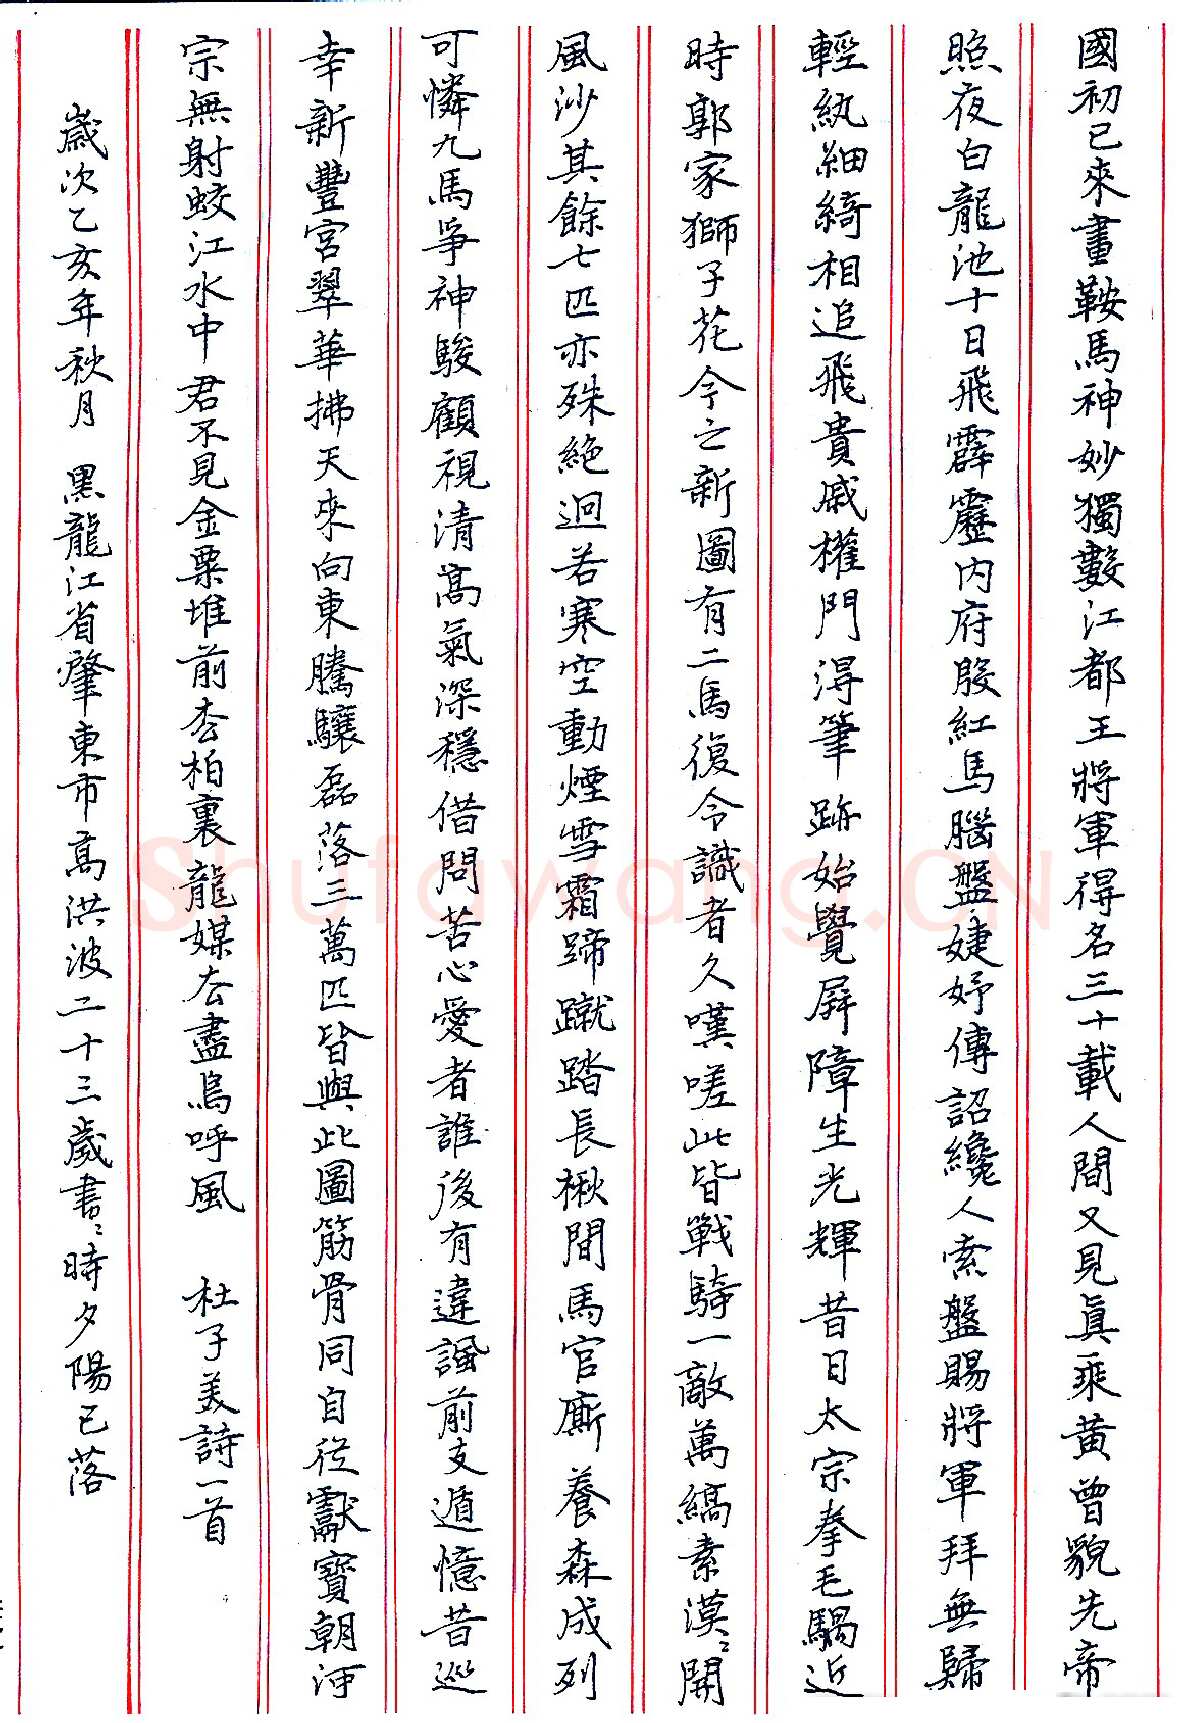 國初已來畫鞍馬神妙獨數江都王將軍得名三十載人間又見真乘黃曾貌先帝
照夜白龍池十日飛霹靂内府殷紅馬腦盤婕妤傳詔纔人索盤賜將軍拜無歸
輕紈細綺相追飛貴戚權門得筆跡始覺屏障生光輝昔日太宗拳毛騧近
時郭家獅子花今之新圖有二馬復令識者久嘆嗟此皆戰騎一敵萬縞素漠〻開
風沙其餘七匹亦殊絕迥若寒空動煙雪霜蹄蹴踏長楸間馬官廝養森成列
可憐九馬爭神駿顧視清高氣深穩借問苦心愛者誰後有違諷前支遁憶昔巡
幸新豐宮翠華拂天來向東騰驤磊落三萬匹皆與此圖筋骨同自從獻寶朝河
宗無射蛟江水中君不見金粟堆前松柏裏龍媒去盡鳥呼風 杜子美詩一首
歲次乙亥年秋月 黑龍江省肇東市高洪波二十三歲書〻時夕陽已落
Shufawang.CN